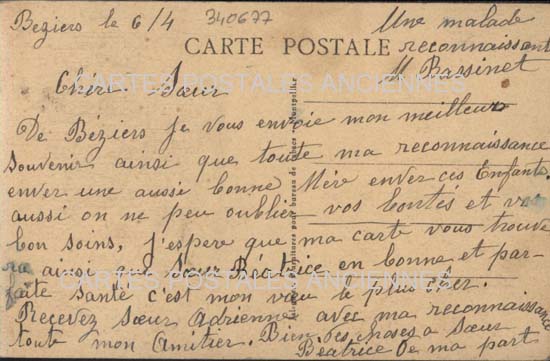 Beziers le 6/4
340677
Une malade
reconnaissante
M Bassinet
CARTE POSTALE
CARTES POSTALES ANCIENNES
Chere Sœur
De Béziers Je vous envoie mon meilleur
souvenir ainsi que toute ma reconnaissance
enver une aussi bonne Mère enver ces Enfants
aussi on ne peu oublier vos bontés et vos
bon soins, j'espere que ma carte vous trouve
ra ainsi que Sœur Béatrice en bonne et par-
faite santé c'est mon vœu le plus cher.
CARTES POSTALES ANCIENNES
Recevez Sœur Adrienne avec ma reconnaissance
toute mon Amitier. Bien des choses a Sœur
Béatrice De ma part